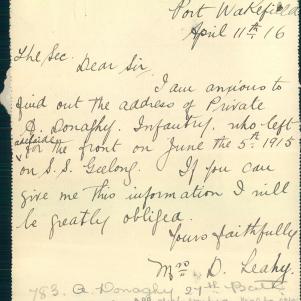 Port Wakefield
April 11th 16
The Sec
Dear Sir
I am anxious to
find out the address of Private
A. Donaghy. Infantry, who left
adelaide
for the front on June the 5th 1915
on S.S. Geelong. If you can
give me this information I will
be greatly obliged.
Yours faithfully
Mrs D. Leahy.
783. A. Donaghy 27th Batt